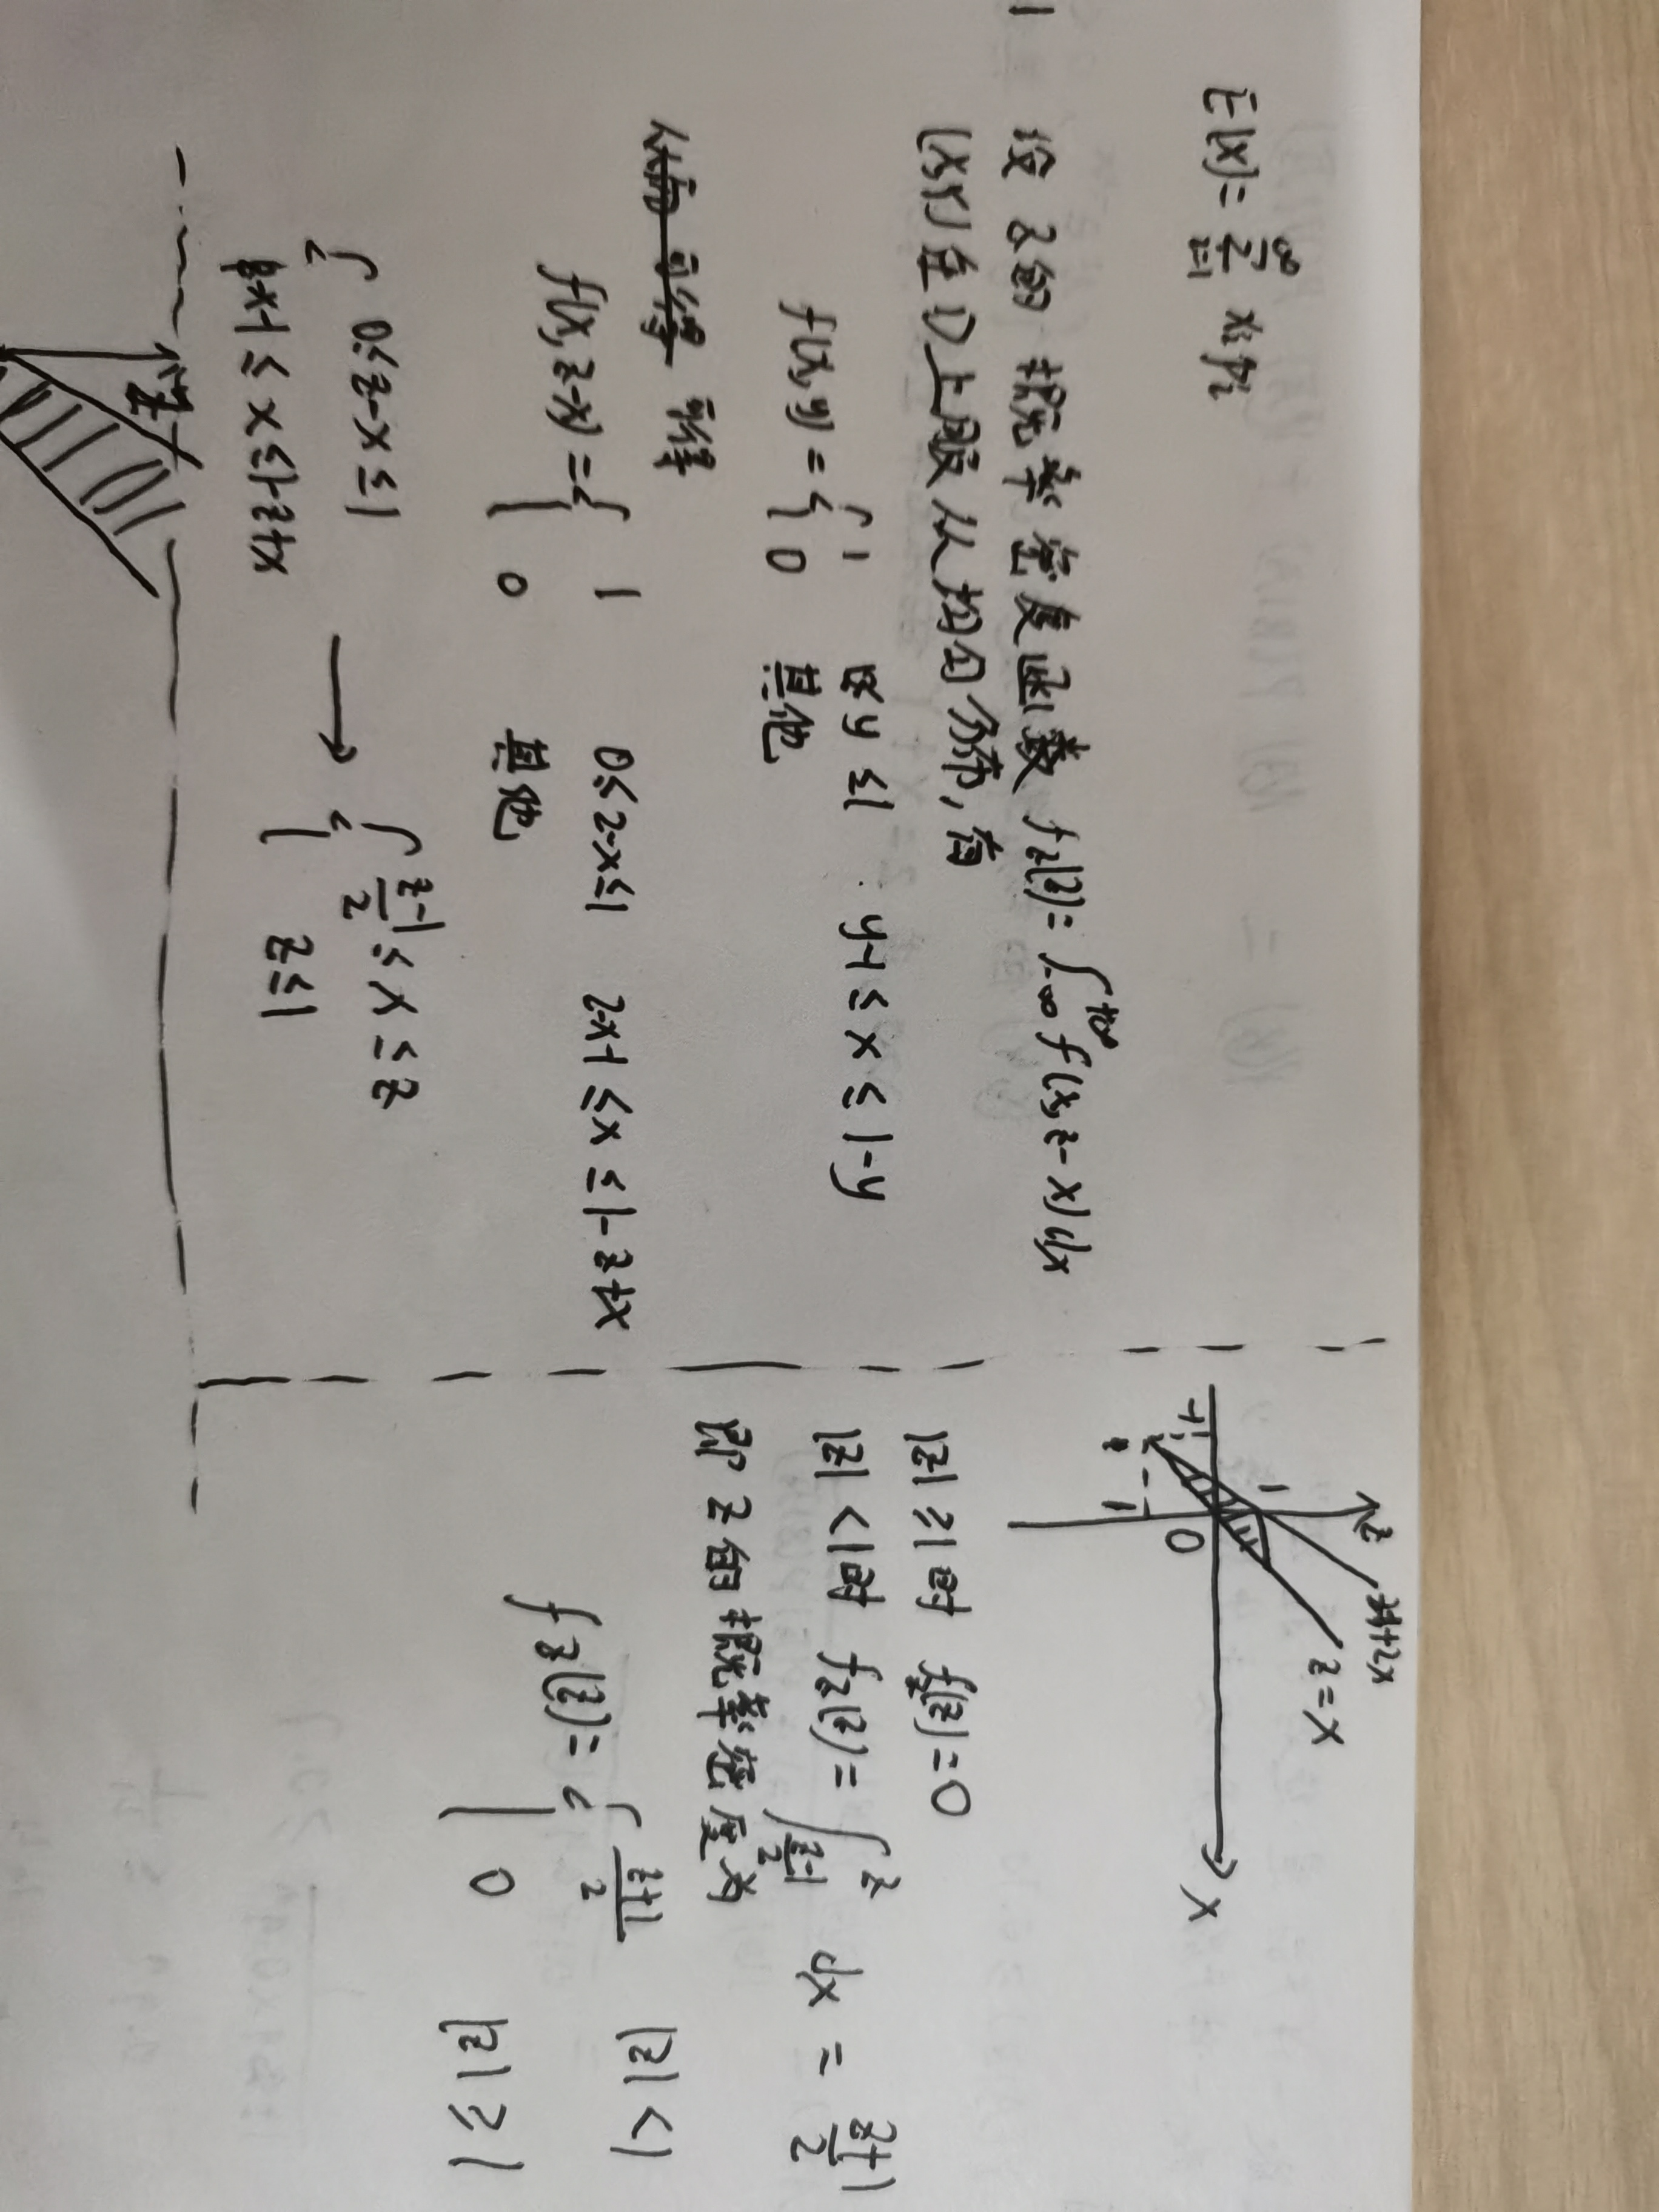 E(X)=∑_{i=1}^{∞} x_i p_i
设 Z的 概率密度函数 f_Z(z)=∫_{-∞}^{+∞} f(x,z-x)dx
(X,Y)在D上服从均匀分布,有
f(x,y)={ 1 0≤y≤1 y-1≤x≤1-y
0 其他
可得
f(x,z-x)={ 1 0≤z-x≤1 z-x-1≤x≤1-z+x
0 其他
{ 0≤z-x≤1
z-x-1≤x≤1-z+x
→ { \frac{z-1}{2}≤x≤z
z≤1
z
z
1+2x
z=x
1
-1
0
-1
x
|z|≥1时 f_Z(z)=0
|z|<1时 f_Z(z)=∫_{\frac{z-1}{2}}^{z} dx = \frac{z+1}{2}
即 Z的概率密度为
f_Z(z)={ \frac{z+1}{2} |z|<1
0 |z|≥1